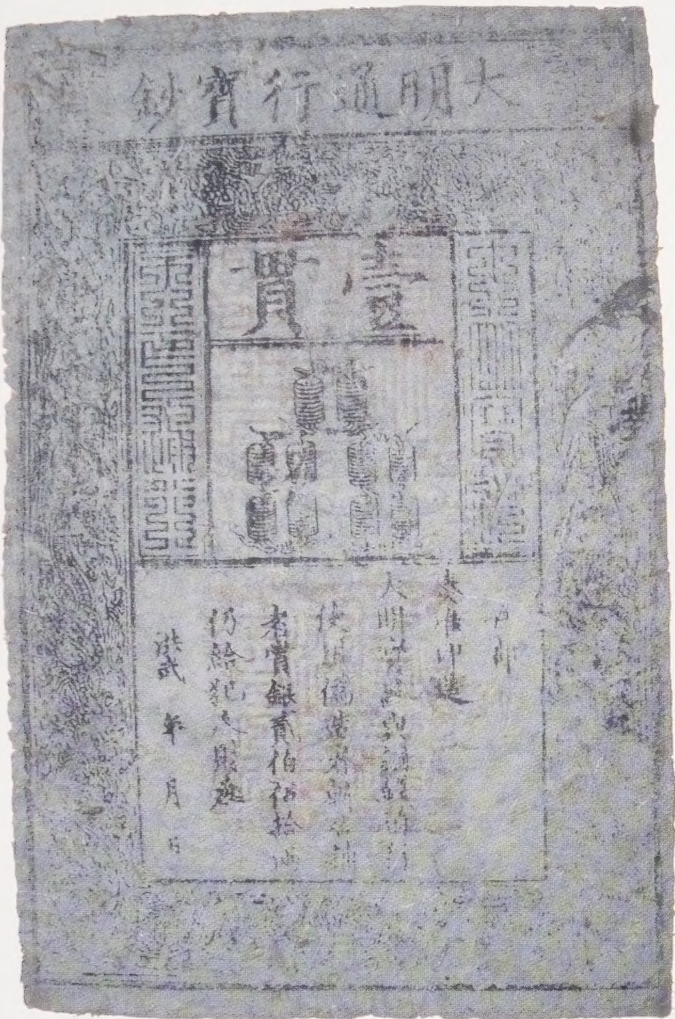 大明通行寶鈔
壹貫
大明寶鈔
天下通行
戶部
奏准印造
大明寶鈔與銅錢通行
使用偽造者斬告捕
者賞銀貳伯伍拾兩
仍給犯人財産
洪武 年 月 日